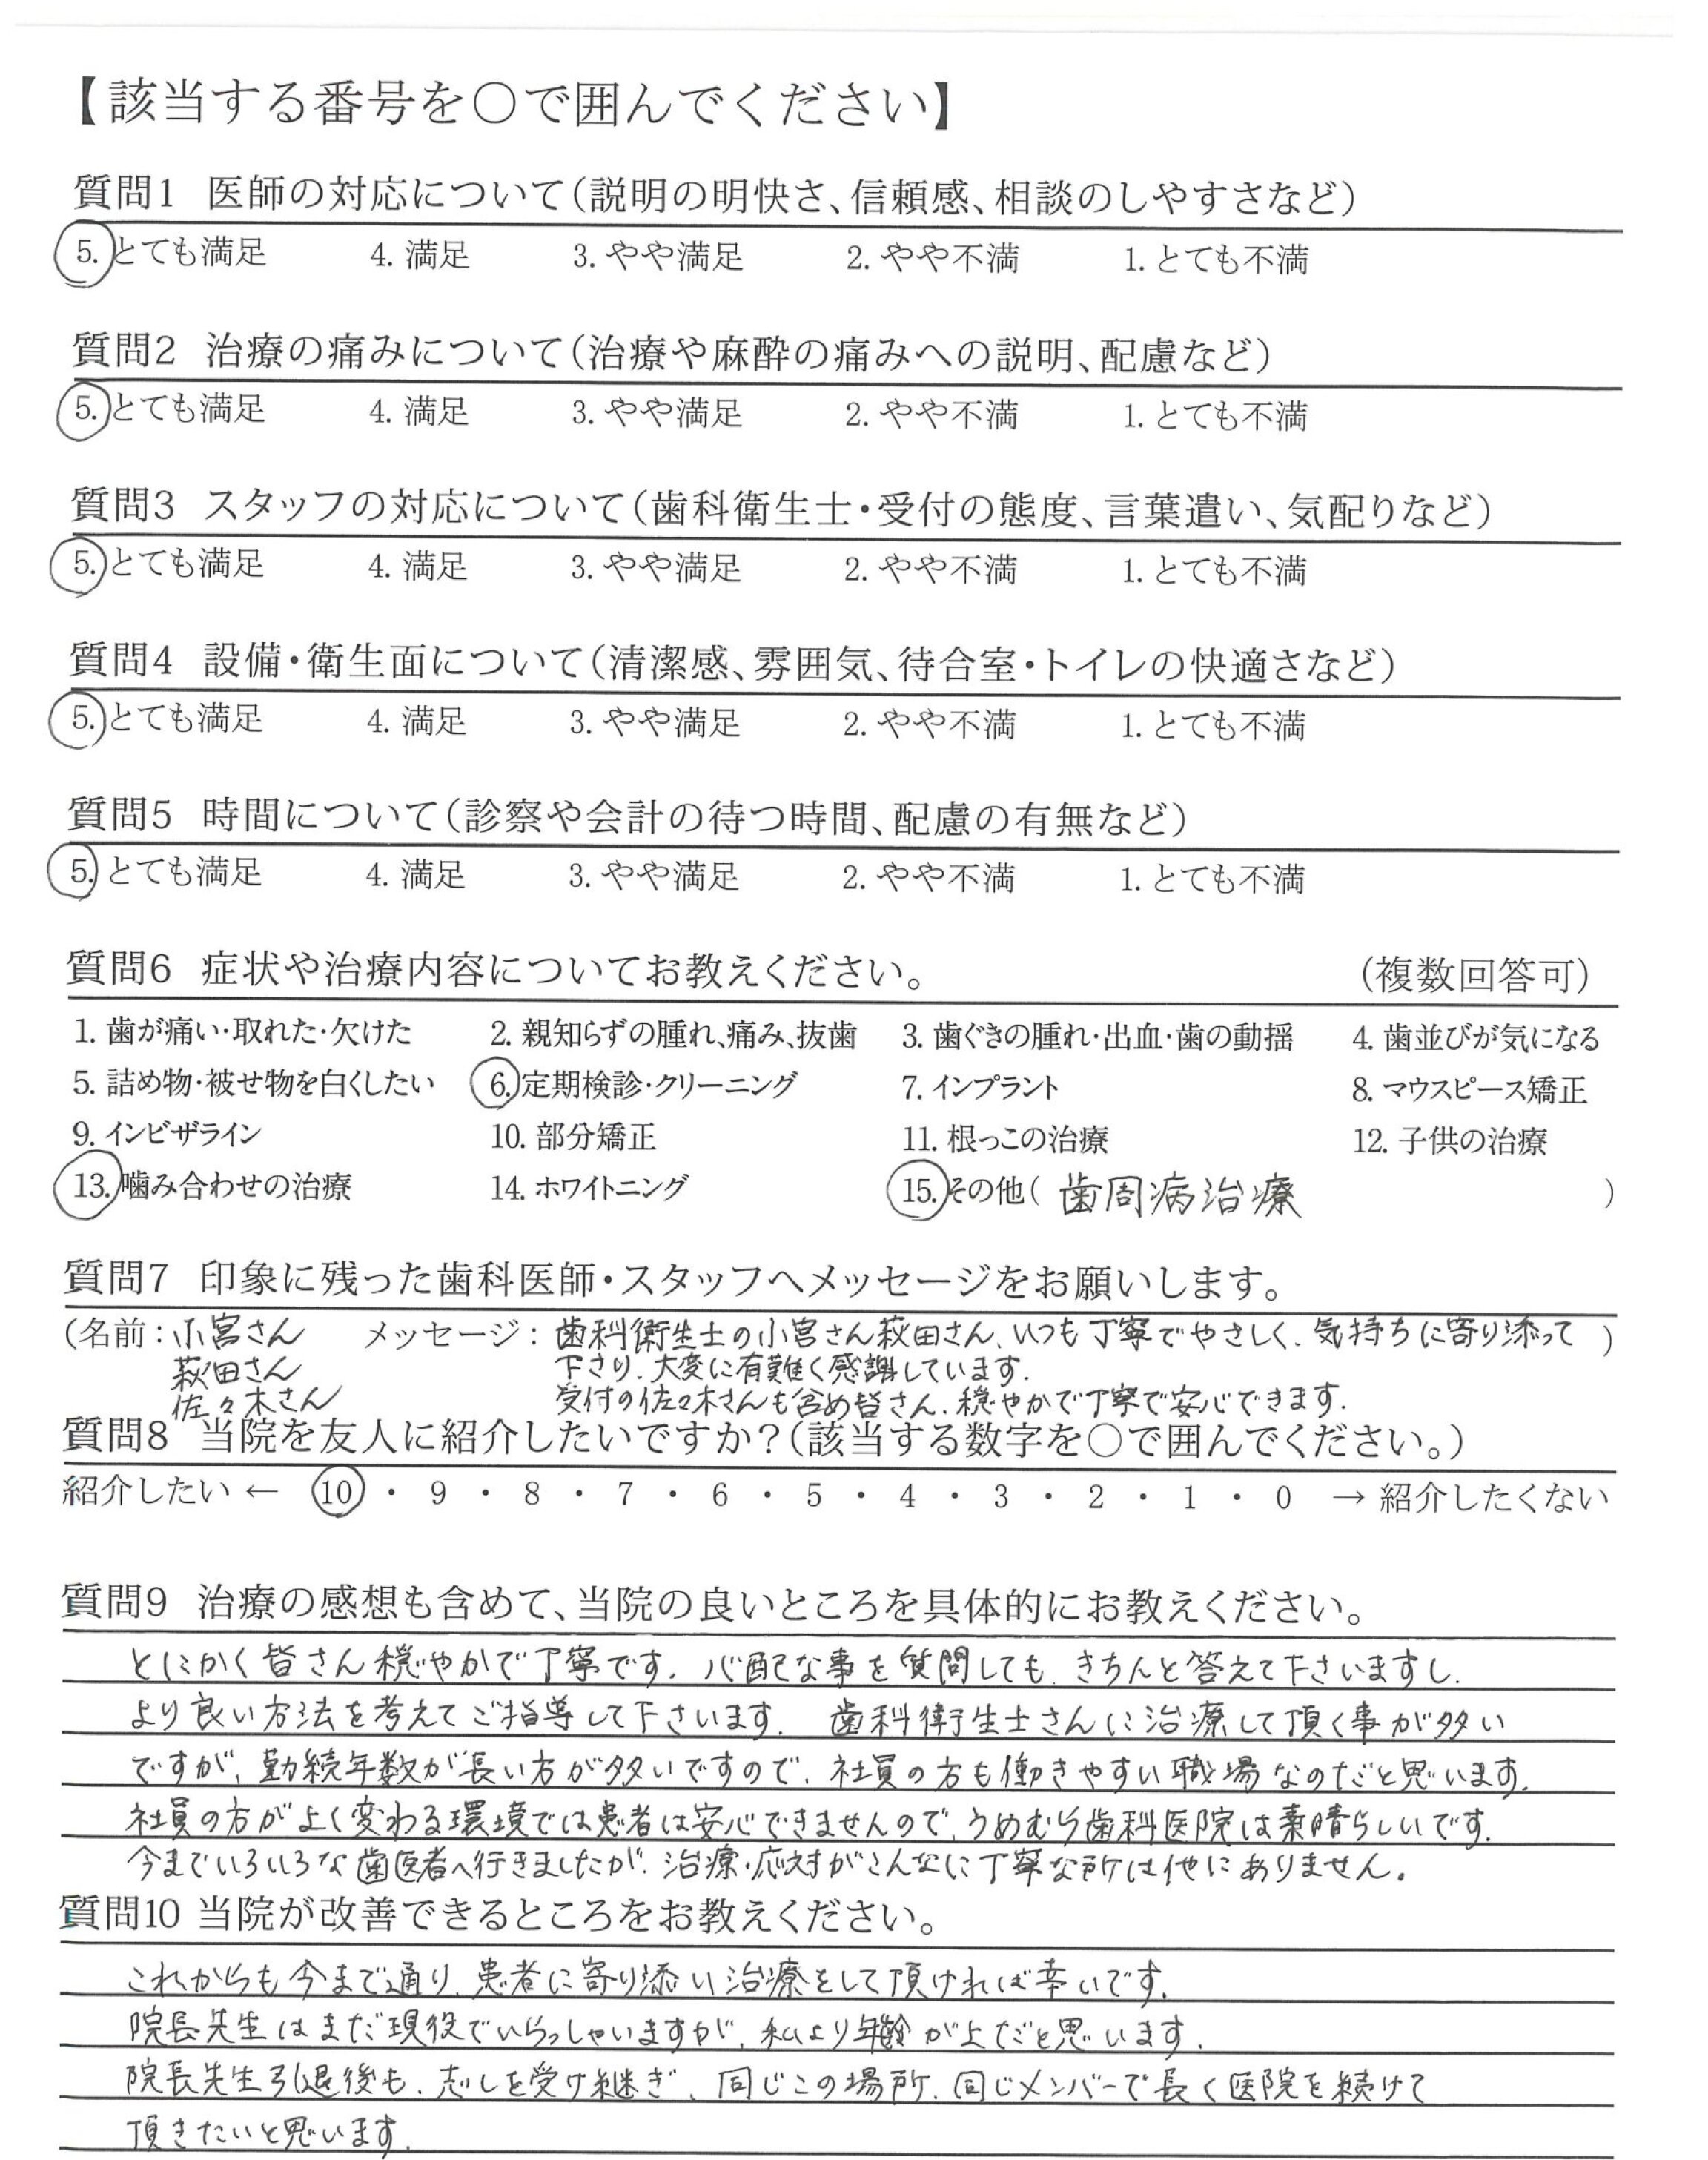 【該当する番号を○で囲んでください】
質問1 医師の対応について(説明の明快さ、信頼感、相談のしやすさなど)
5. とても満足 4. 満足 3. やや満足 2. やや不満 1. とても不満
質問2 治療の痛みについて(治療や麻酔の痛みへの説明、配慮など)
5. とても満足 4. 満足 3. やや満足 2. やや不満 1. とても不満
質問3 スタッフの対応について(歯科衛生士・受付の態度、言葉遣い、気配りなど)
5. とても満足 4. 満足 3. やや満足 2. やや不満 1. とても不満
質問4 設備・衛生面について(清潔感、雰囲気、待合室・トイレの快適さなど)
5. とても満足 4. 満足 3. やや満足 2. やや不満 1. とても不満
質問5 時間について(診察や会計の待つ時間、配慮の有無など)
5. とても満足 4. 満足 3. やや満足 2. やや不満 1. とても不満
質問6 症状や治療内容についてお教えください。 (複数回答可)
1. 歯が痛い・取れた・欠けた 2. 親知らずの腫れ、痛み、抜歯 3. 歯ぐきの腫れ・出血・歯の動揺 4. 歯並びが気になる
5. 詰め物・被せ物を白くしたい 6. 定期検診・クリーニング 7. インプラント 8. マウスピース矯正
9. インビザライン 10. 部分矯正 11. 根っこの治療 12. 子供の治療
13. 噛み合わせの治療 14. ホワイトニング 15. その他( 歯周病治療 )
質問7 印象に残った歯科医師・スタッフへメッセージをお願いします。
(名前：小宮さん メッセージ：歯科衛生士の小宮さん萩田さん、いつも丁寧でやさしく、気持ちに寄り添って )
萩田さん 下さり、大変に有難く感謝しています。
佐々木さん 受付の佐々木さんも含め皆さん、穏やかで丁寧で安心できます。
質問8 当院を友人に紹介したいですか?(該当する数字を○で囲んでください。)
紹介したい ← 10 ・ 9 ・ 8 ・ 7 ・ 6 ・ 5 ・ 4 ・ 3 ・ 2 ・ 1 ・ 0 → 紹介したくない
質問9 治療の感想も含めて、当院の良いところを具体的にお教えください。
とにかく皆さん穏やかで丁寧です。心配な事を質問しても、きちんと答えて下さいますし、
より良い方法を考えてご指導して下さいます。 歯科衛生士さんに治療して頂く事が多い
ですが、勤続年数が長い方が多いですので、社員の方も働きやすい職場なのだと思います。
社員の方がよく変わる環境では患者は安心できませんので、うめむら歯科医院は素晴らしいです。
今までいろいろな歯医者へ行きましたが、治療・応対がこんなに丁寧な所は他にありません。
質問10 当院が改善できるところをお教えください。
これからも今まで通り、患者に寄り添い治療をして頂ければ幸いです。
院長先生はまだ現役でいらっしゃいますが、私より年齢が上だと思います。
院長先生引退後も、志しを受け継ぎ、同じこの場所、同じメンバーで長く医院を続けて
頂きたいと思います。